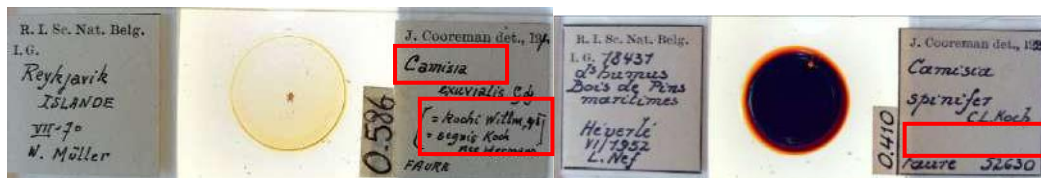 R. I. Sc. Nat. Belg.
I. G.
Reykjavik
ISLANDE
VII-70
W. Müller
0.586
J. Cooreman det., 19
Camisia
exuvialis Gdj
= Kochi Willm,
= segnis Koch
nec Hermann
FAURE
R. I. Sc. Nat. Belg.
I. G. 18431
ds humus
Bois de Pins
maritimes
Héverlé
VI/1952
L. Nef
0.410
J. Cooreman det., 195
Camisia
spinifer
C.L. Koch
Faure 52630